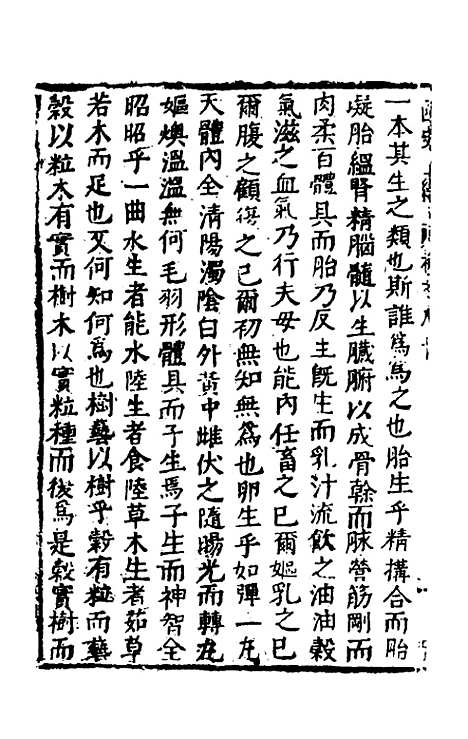 一本其生之類也斯誰爲爲之也胎生乎精搆合而胎
凝胎緼腎精腦髓以生臟腑以成骨榦而脉營筋剛而
肉柔百體具而胎乃反主旣生而乳汁流飲之油油穀
氣滋之血氣乃行夫母也能內任畜之已爾嫗乳之已
爾腹之顧復之已爾初無知無爲也卵生乎如彈一丸
天體內全清陽濁陰白外黃中雌伏之隨暘光而轉丸
嫗燠溫溫無何毛羽形體具而子生焉子生而神智全
昭昭乎一曲水生者能水陸生者食陸草木生者茹草
若木而足也又何知何爲也樹藝以樹乎穀有粒而藝
穀以粒木有實而樹木以實粒種而後爲是穀實樹而